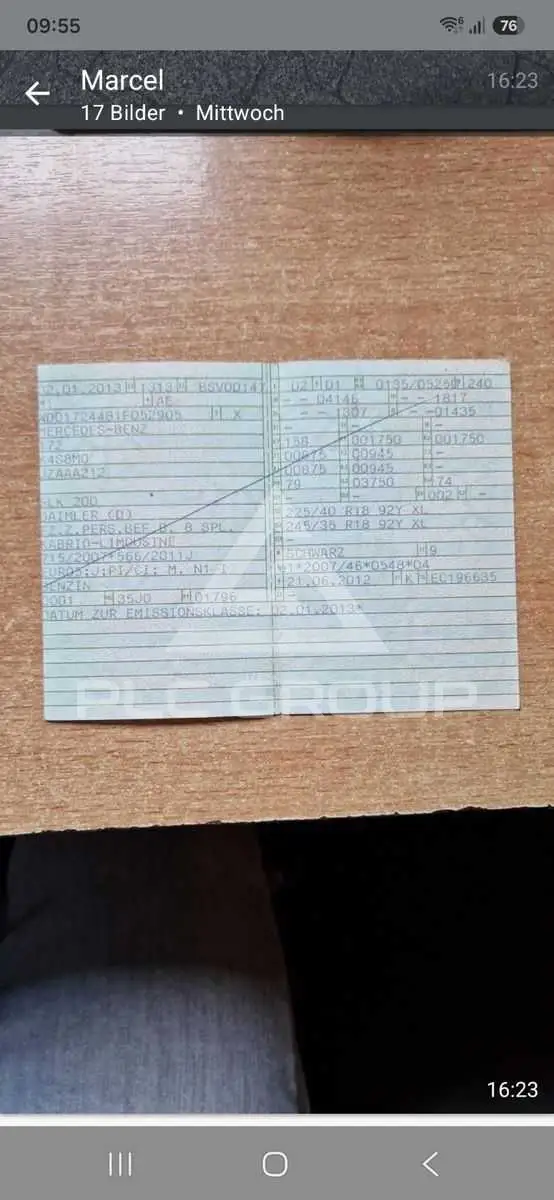 09:55
6
76
Marcel
16:23
17 Bilder • Mittwoch
02.01.2013 1313 BSV00147
AE
X
MERCEDES-BENZ
172
SLK 200
DAIMLER (D)
FZ.Z.PERS.BEF.B. 8 SPL.
KABRIO-LIMOUSINE
715/2007*566/2011J
EURO5;J;PI/CI; M, N1 I
BENZIN
0001 35J0 01796
DATUM ZUR EMISSIONSKLASSE: 02.01.2013*
02 01 0135/05250 240
- - 04146 - - 1817
- - 1307 - -01435
-
158 001750 001750
00875 00945
00875 00945
79 03750 74
- 002 -
225/40 R18 92Y XL
245/35 R18 92Y XL
-
SCHWARZ 9
e1*2007/46*0548*04
21.06.2012 K EC196635
-
PLC GROUP
16:23